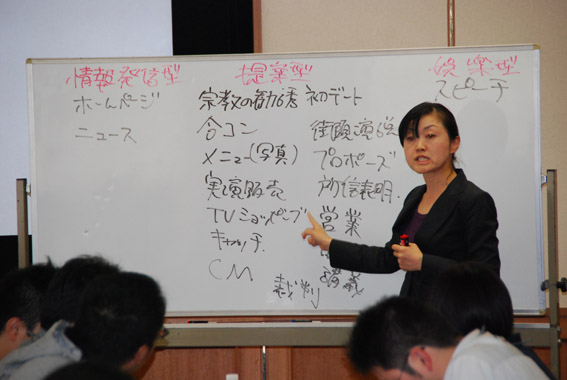 情報発信型
ホームページ
ニュース
提案型
宗教の勧誘
合コン
メニュー(写真)
実演販売
TVショッピング
キャッチ
CM
初のデート
街頭演説
プロポーズ
所信表明
営業
講義
裁判
娯楽型
スピーチ